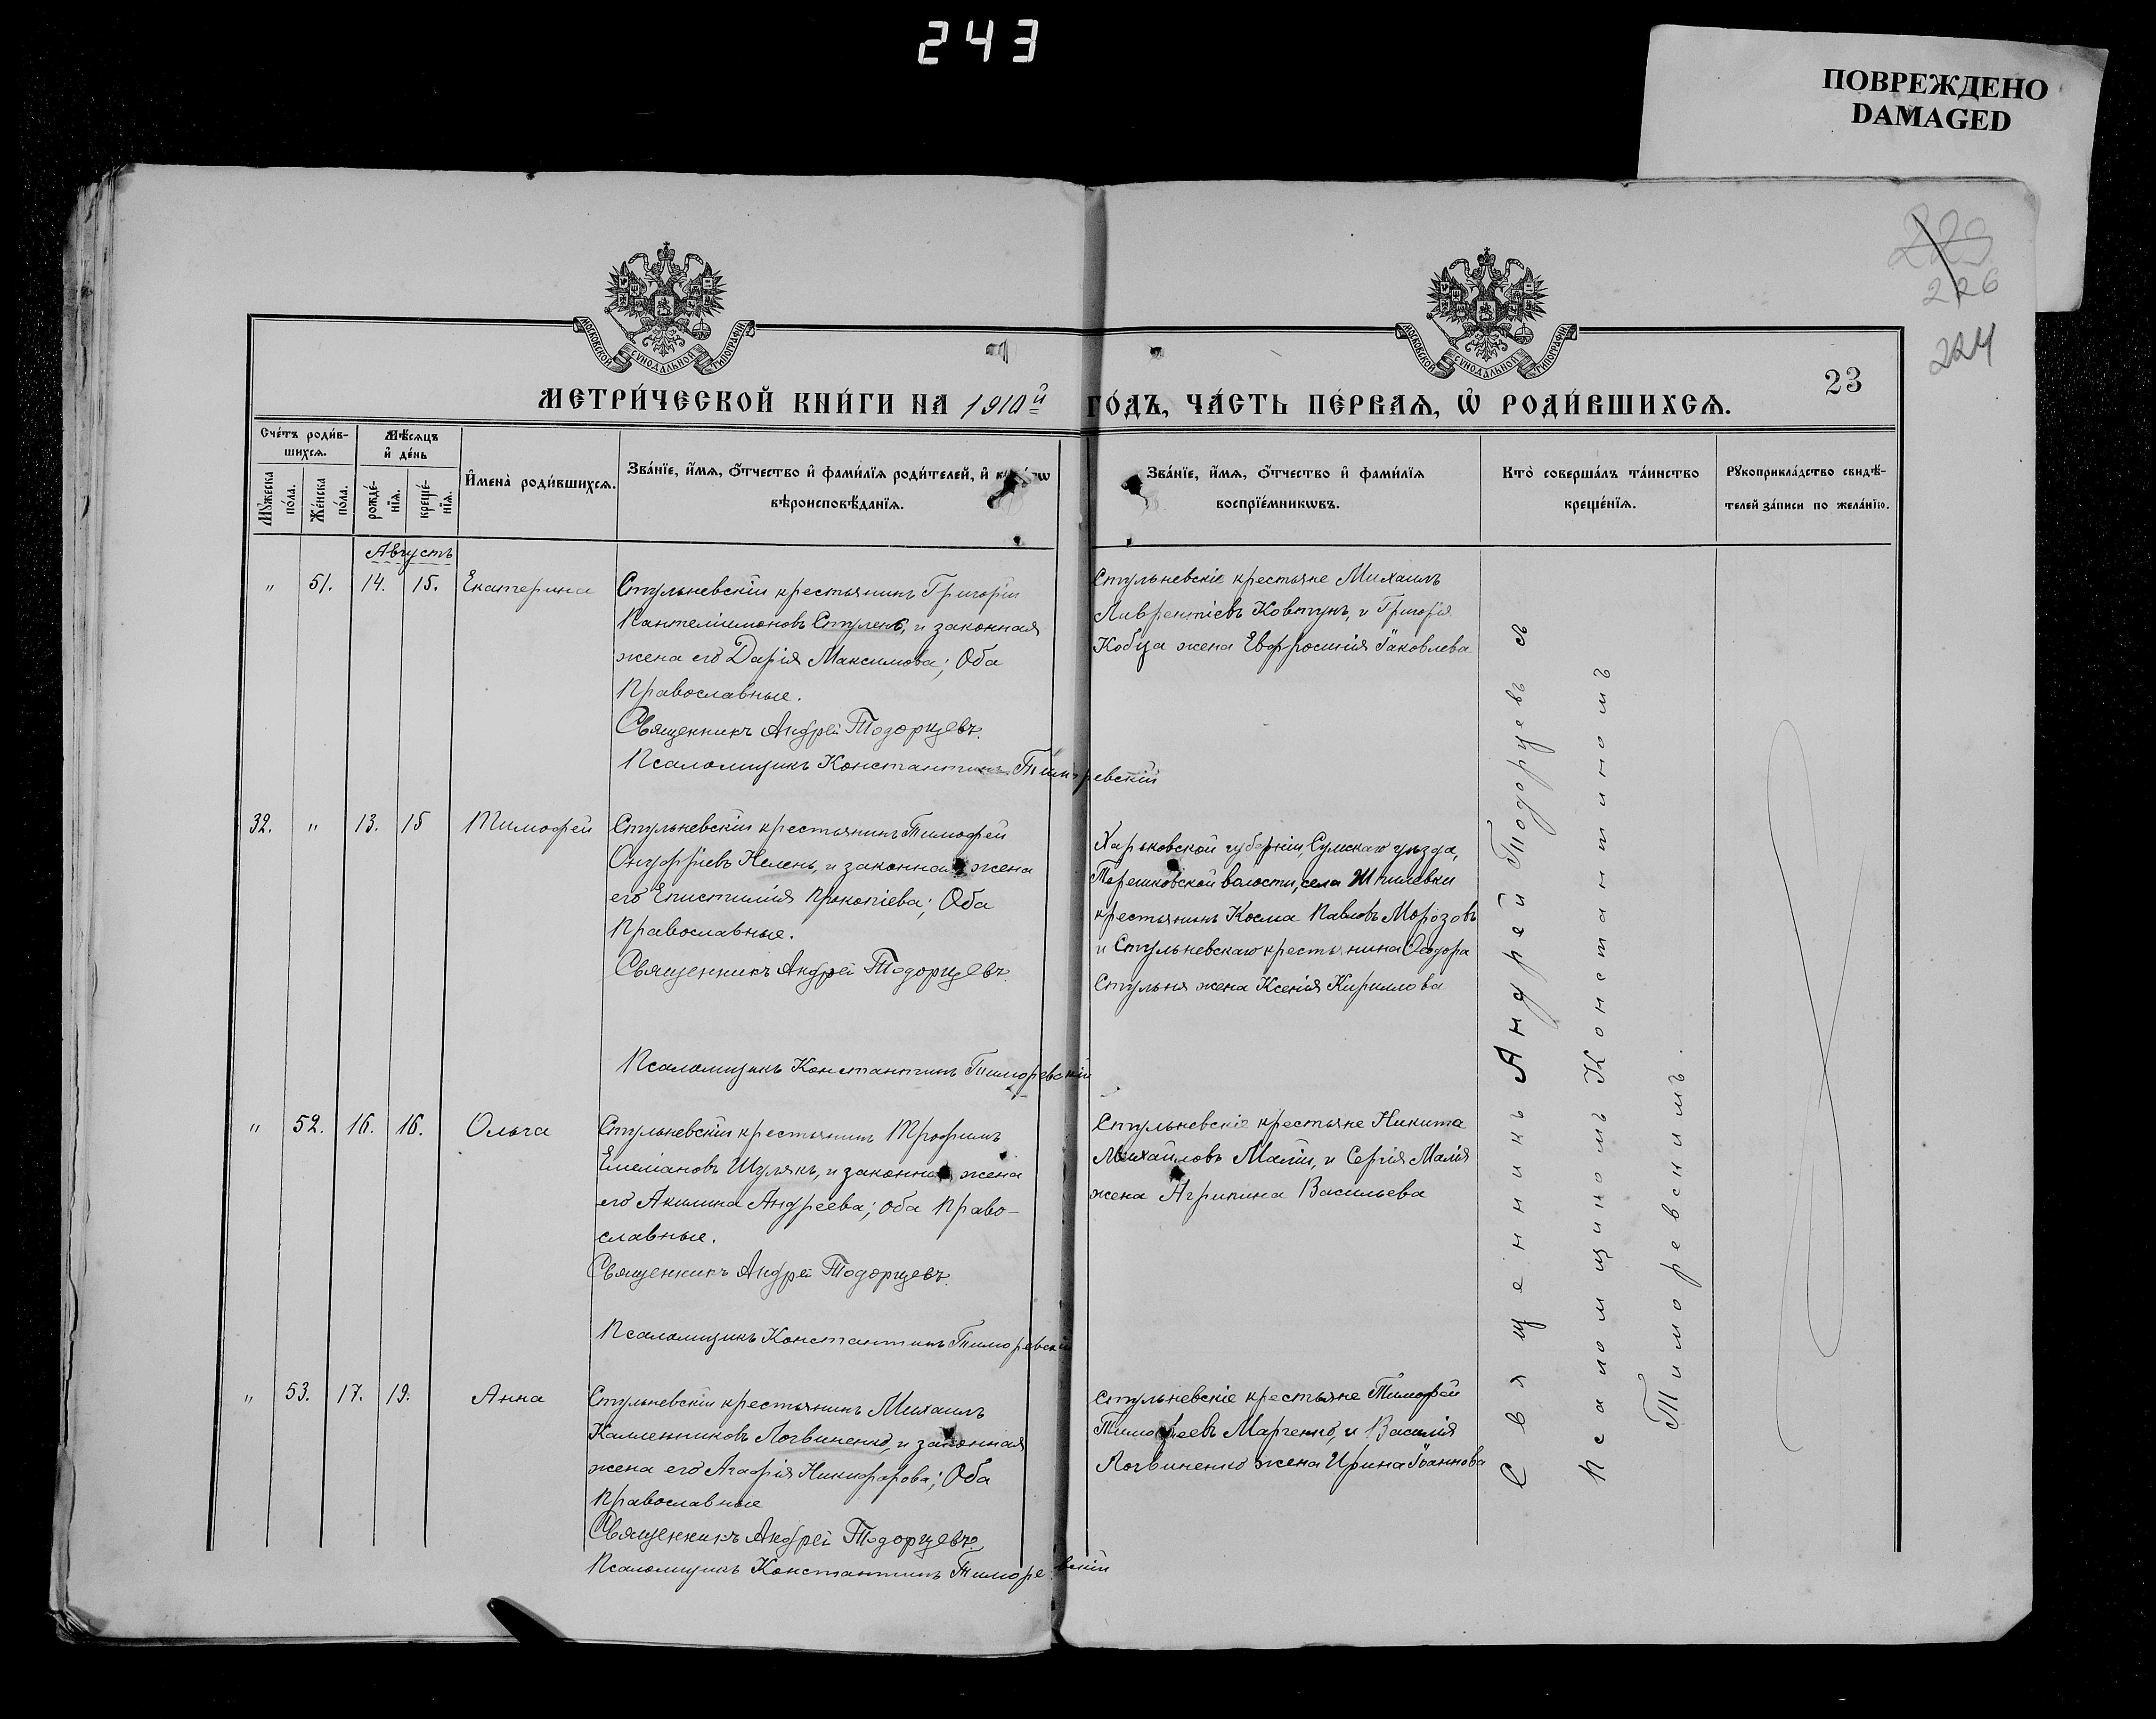 243
ПОВРЕЖДЕНО
DAMAGED
229
226
224
МОСКОВСКОЙ СѴНОДАЛЬНОЙ ТИПОГРАФІИ
МОСКОВСКОЙ СѴНОДАЛЬНОЙ ТИПОГРАФІИ
23
МЕТРИ́ЧЕСКОЙ КНИ́ГИ НА 1910й ГО́ДЪ, ЧА́СТЬ ПЕ́РВАЯ, Ѿ РОДИ́ВШИХСЯ.
Сче́тъ роди́в-
шихсѧ.
Мꙋжеска по́ла.
Же́нска по́ла.
Мѣ́сѧцъ
и҆ де́нь
рожде́-
нїѧ.
креще́-
нїѧ.
И҆мена̀ роди́вшихсѧ.
Зва́нїе, и҆́мѧ, ѻ҆́тчество и҆ фами́лїѧ роди́телей, и҆
вѣроисповѣ́данїѧ.
Зва́нїе, и҆́мѧ, ѻ҆́тчество и҆ фами́лїѧ
воспрїе́мникѡвъ.
Кто̀ соверша́лъ та́инство
креще́нїѧ.
Рꙋкоприкла́дство свидѣ́-
телей за́писи по жела́нїю.
Августъ
" 51. 14. 15. Екатерина
Стульневскій крестьянинъ Григорій
Пантелиимоновъ Стулень, и законная
жена его Дарія Максимова; Оба
Православные.
Священникъ Андрей Тодорцевъ.
Псаломщикъ Константинъ Тиморевскій
Стульневскіе крестьяне Михаилъ
Лаврентіевъ Ковтунъ, и Григорія
Кобца жена Евфросинія Іаковлева
32. " 13. 15 Тимофей
Стульневскій крестьянинъ Тимофей
Онуфріевъ Нелень, и законная жена
его Епистимія Прокопіева; Оба
Православные.
Священникъ Андрей Тодорцевъ.
Псаломщикъ Константинъ Тиморевскій
Харьковской губерніи, Сумскаго уѣзда,
Терешковской волости, села Шпилевки
крестьянинъ Косма Павловъ Морозовъ
и Стульневскаго крестьянина Ѳеодора
Стульня жена Ксенія Кириллова
" 52. 16. 16. Ольга
Стульневскій крестьянинъ Трофимъ
Емеліановъ Шулякъ, и законная жена
его Акилина Андреева; оба Право-
славные.
Священникъ Андрей Тодорцевъ.
Псаломщикъ Константинъ Тиморевскій
Стульневскіе крестьяне Никита
Михайловъ Малій, и Сергія Малія
жена Агрипина Васильева
" 53. 17. 19. Анна
Стульневскій крестьянинъ Михаилъ
Каллиниковъ Логвиненко, и законная
жена его Агафія Никифорова; Оба
Православные
Священникъ Андрей Тодорцевъ.
Псаломщикъ Константинъ Тиморевскій
Стульневскіе крестьяне Тимофей
Тимофеевъ Марченко, и Василія
Логвиненко жена Ирина Іоаннова
Священникъ Андрей Тодорцевъ съ
Псаломщикомъ Константиномъ
Тиморевскимъ.